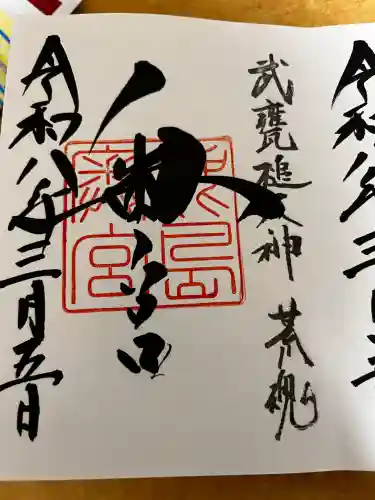 令和八年三月五
武甕槌大神 荒魂
奥宮
鹿島
奥宮
令和八年三月五日